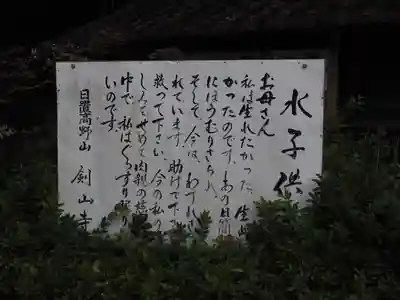 水子供
お母さん
私は生れたかった、生
かったのです、あの日
にほうむりさられ
そして、今は、わすれさ
れています、助けて下
救って下さい、今の私の
しみをせめて肉親の
中で、私はくるす
いのです。
日置高野山 剣山寺